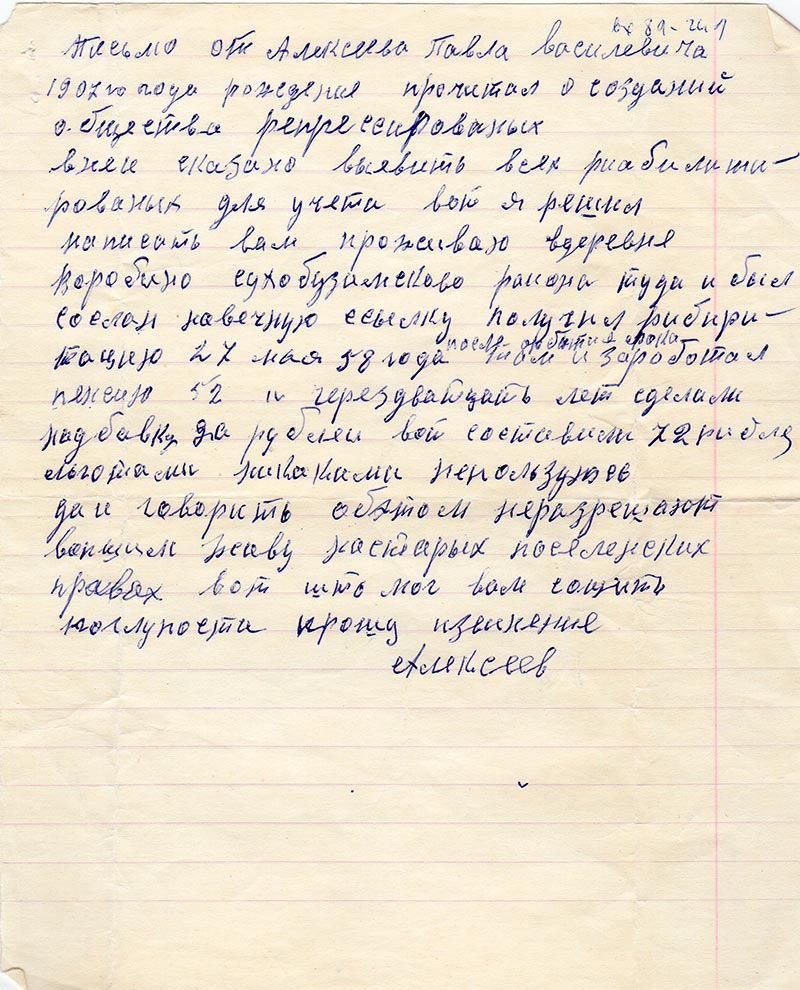 вх 89-24.1
Письмо от Алексеева Павла василевича
1907го года рождения прочитал о созданий
общества репрессированых
вней сказано выявить всех риабилити-
рованых для учета вот я решил
написать вам проживаю вдеревне
Воробино сухобузимсково района туда и был
сослан навечную ссылку получил рибири-
после отбытия срока
тацию 27 мая 58 года там и заработал
пенсию 52 и через дватцать лет сделали
надбавку рублей вот составили 72 рибля
льготами никакими непользуюсь
да и говорить обэтом неразрешают
вопщим жаву настарых поселенских
правах вот што мог вам сощить
поглупости прошу извинения
Алексеев